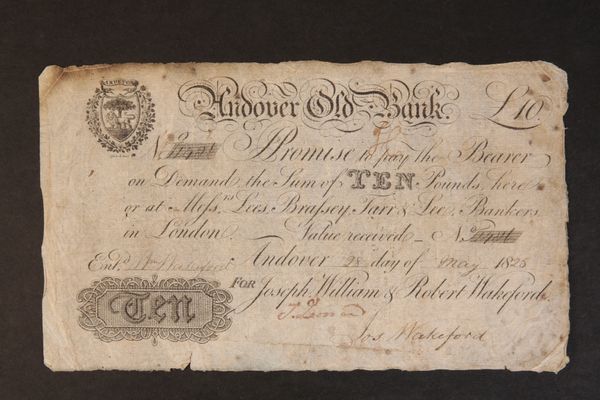 ANDOVER
Andover Old Bank. £10.
No I Promise to pay the Bearer
on Demand the Sum of TEN Pounds, here
or at Messrs Lees, Brassey, Farr & Lee, Bankers,
in London. Value received. No
Entd Wm Wakeford Andover 28 day of May 1825
FOR Joseph, William & Robert Wakeford.
Ten
Jos Wakeford